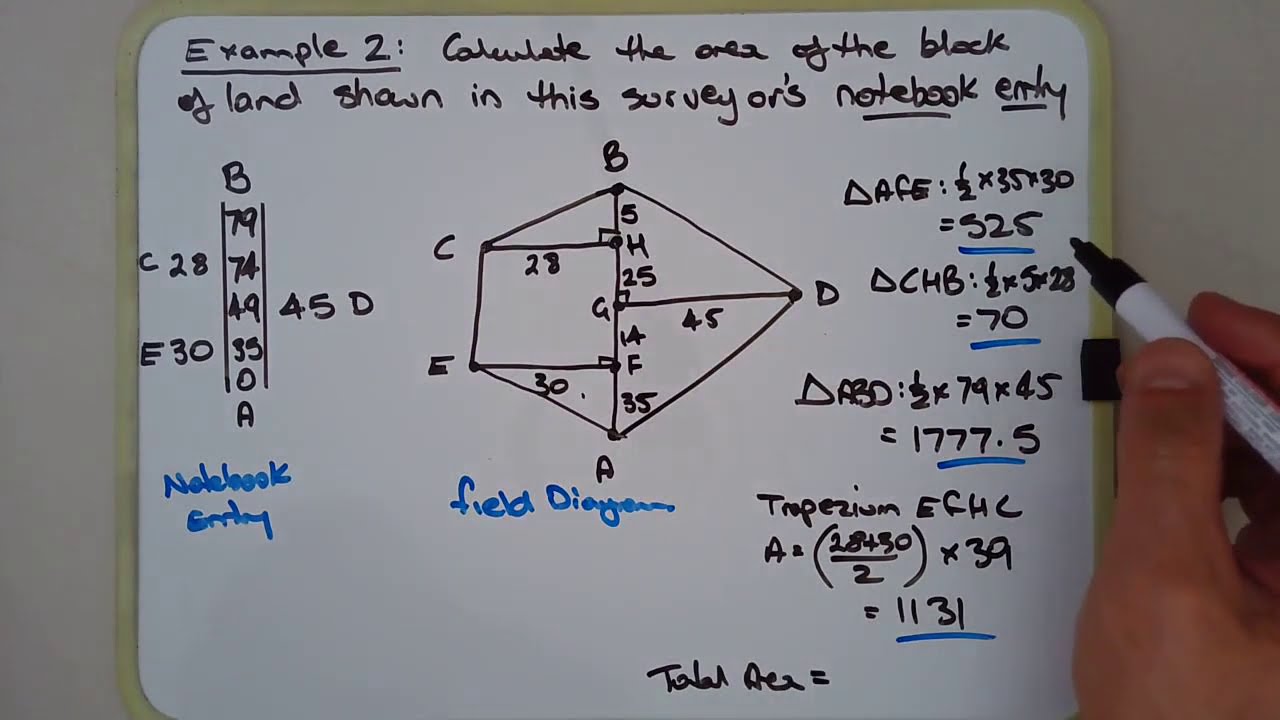 Example 2: Calculate the area of the block
of land shown in this surveyor's notebook entry
B
79
C 28 74
49 45 D
E 30 35
0
A
Notebook
Entry
B
5
C
H
28
25
G
D
45
14
E
F
30
35
A
field Diagram
△AFE: ½ × 35 × 30
= 525
△CHB: ½ × 5 × 28
= 70
△ABD: ½ × 79 × 45
= 1777.5
Trapezium EFHC
A = (28+30/2) × 39
= 1131
Total Area =